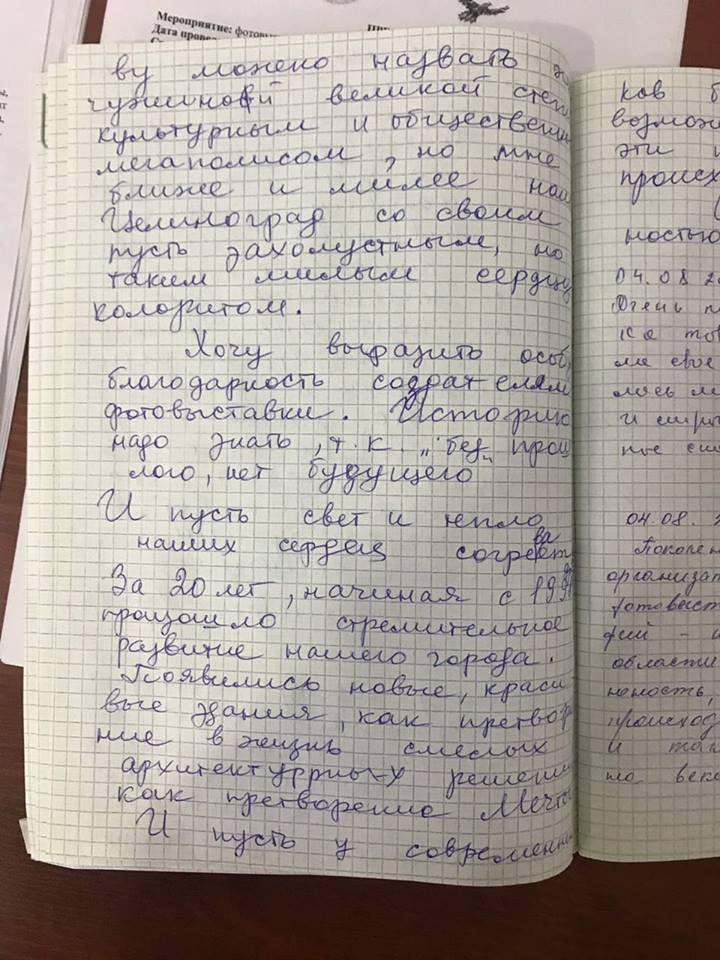 Мероприятие: фотовы
Дата прове
ву можно назвать
чужиной великой степи
культурным и обществен
мегаполисом, но мне
ближе и милее наш
Целиноград со своим
пусть захолустным, но
таким милым сердцу
колоритом.
Хочу выразить особ
благодарность создателям
фотовыставки. Историю
надо знать, т.к. „без прош
лого, нет будущего
И пусть свет и тепло
наших сердец согревает
За 20 лет, начиная с 199
произошло стремительное
развитие нашего города.
Появились новые, краси
вые здания, как претвор
ние в жизнь смелых
архитектурных решени
как претворение Мечты
И пусть у современн
ков б
возмож
эти
происх
ностью
04.08 2
Очень п
ма свое
лось
и
04.08.
Поколе
организат
фотовыст
фий - 
области
ность,
происход
и так